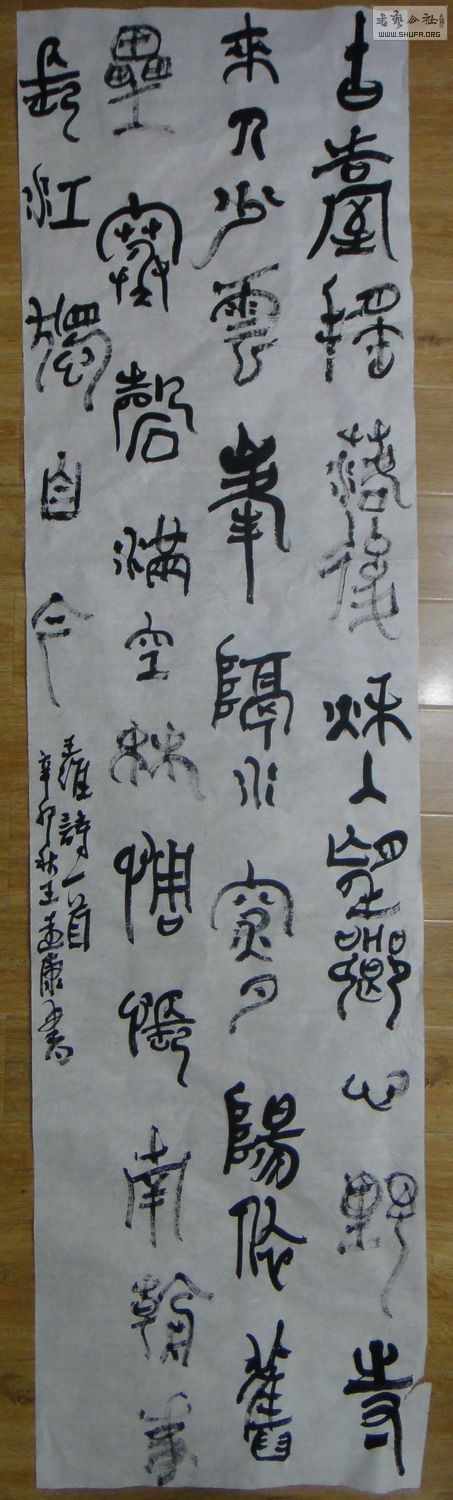 古臺落後秋入望鄉心野寺
來少雲峯隔水深夕陽依舊
壘寒磬滿空林惆悵南朝事
長江獨自今
王維詩一首
辛卯秋王康書
书艺公社
WWW.SHUFA.ORG